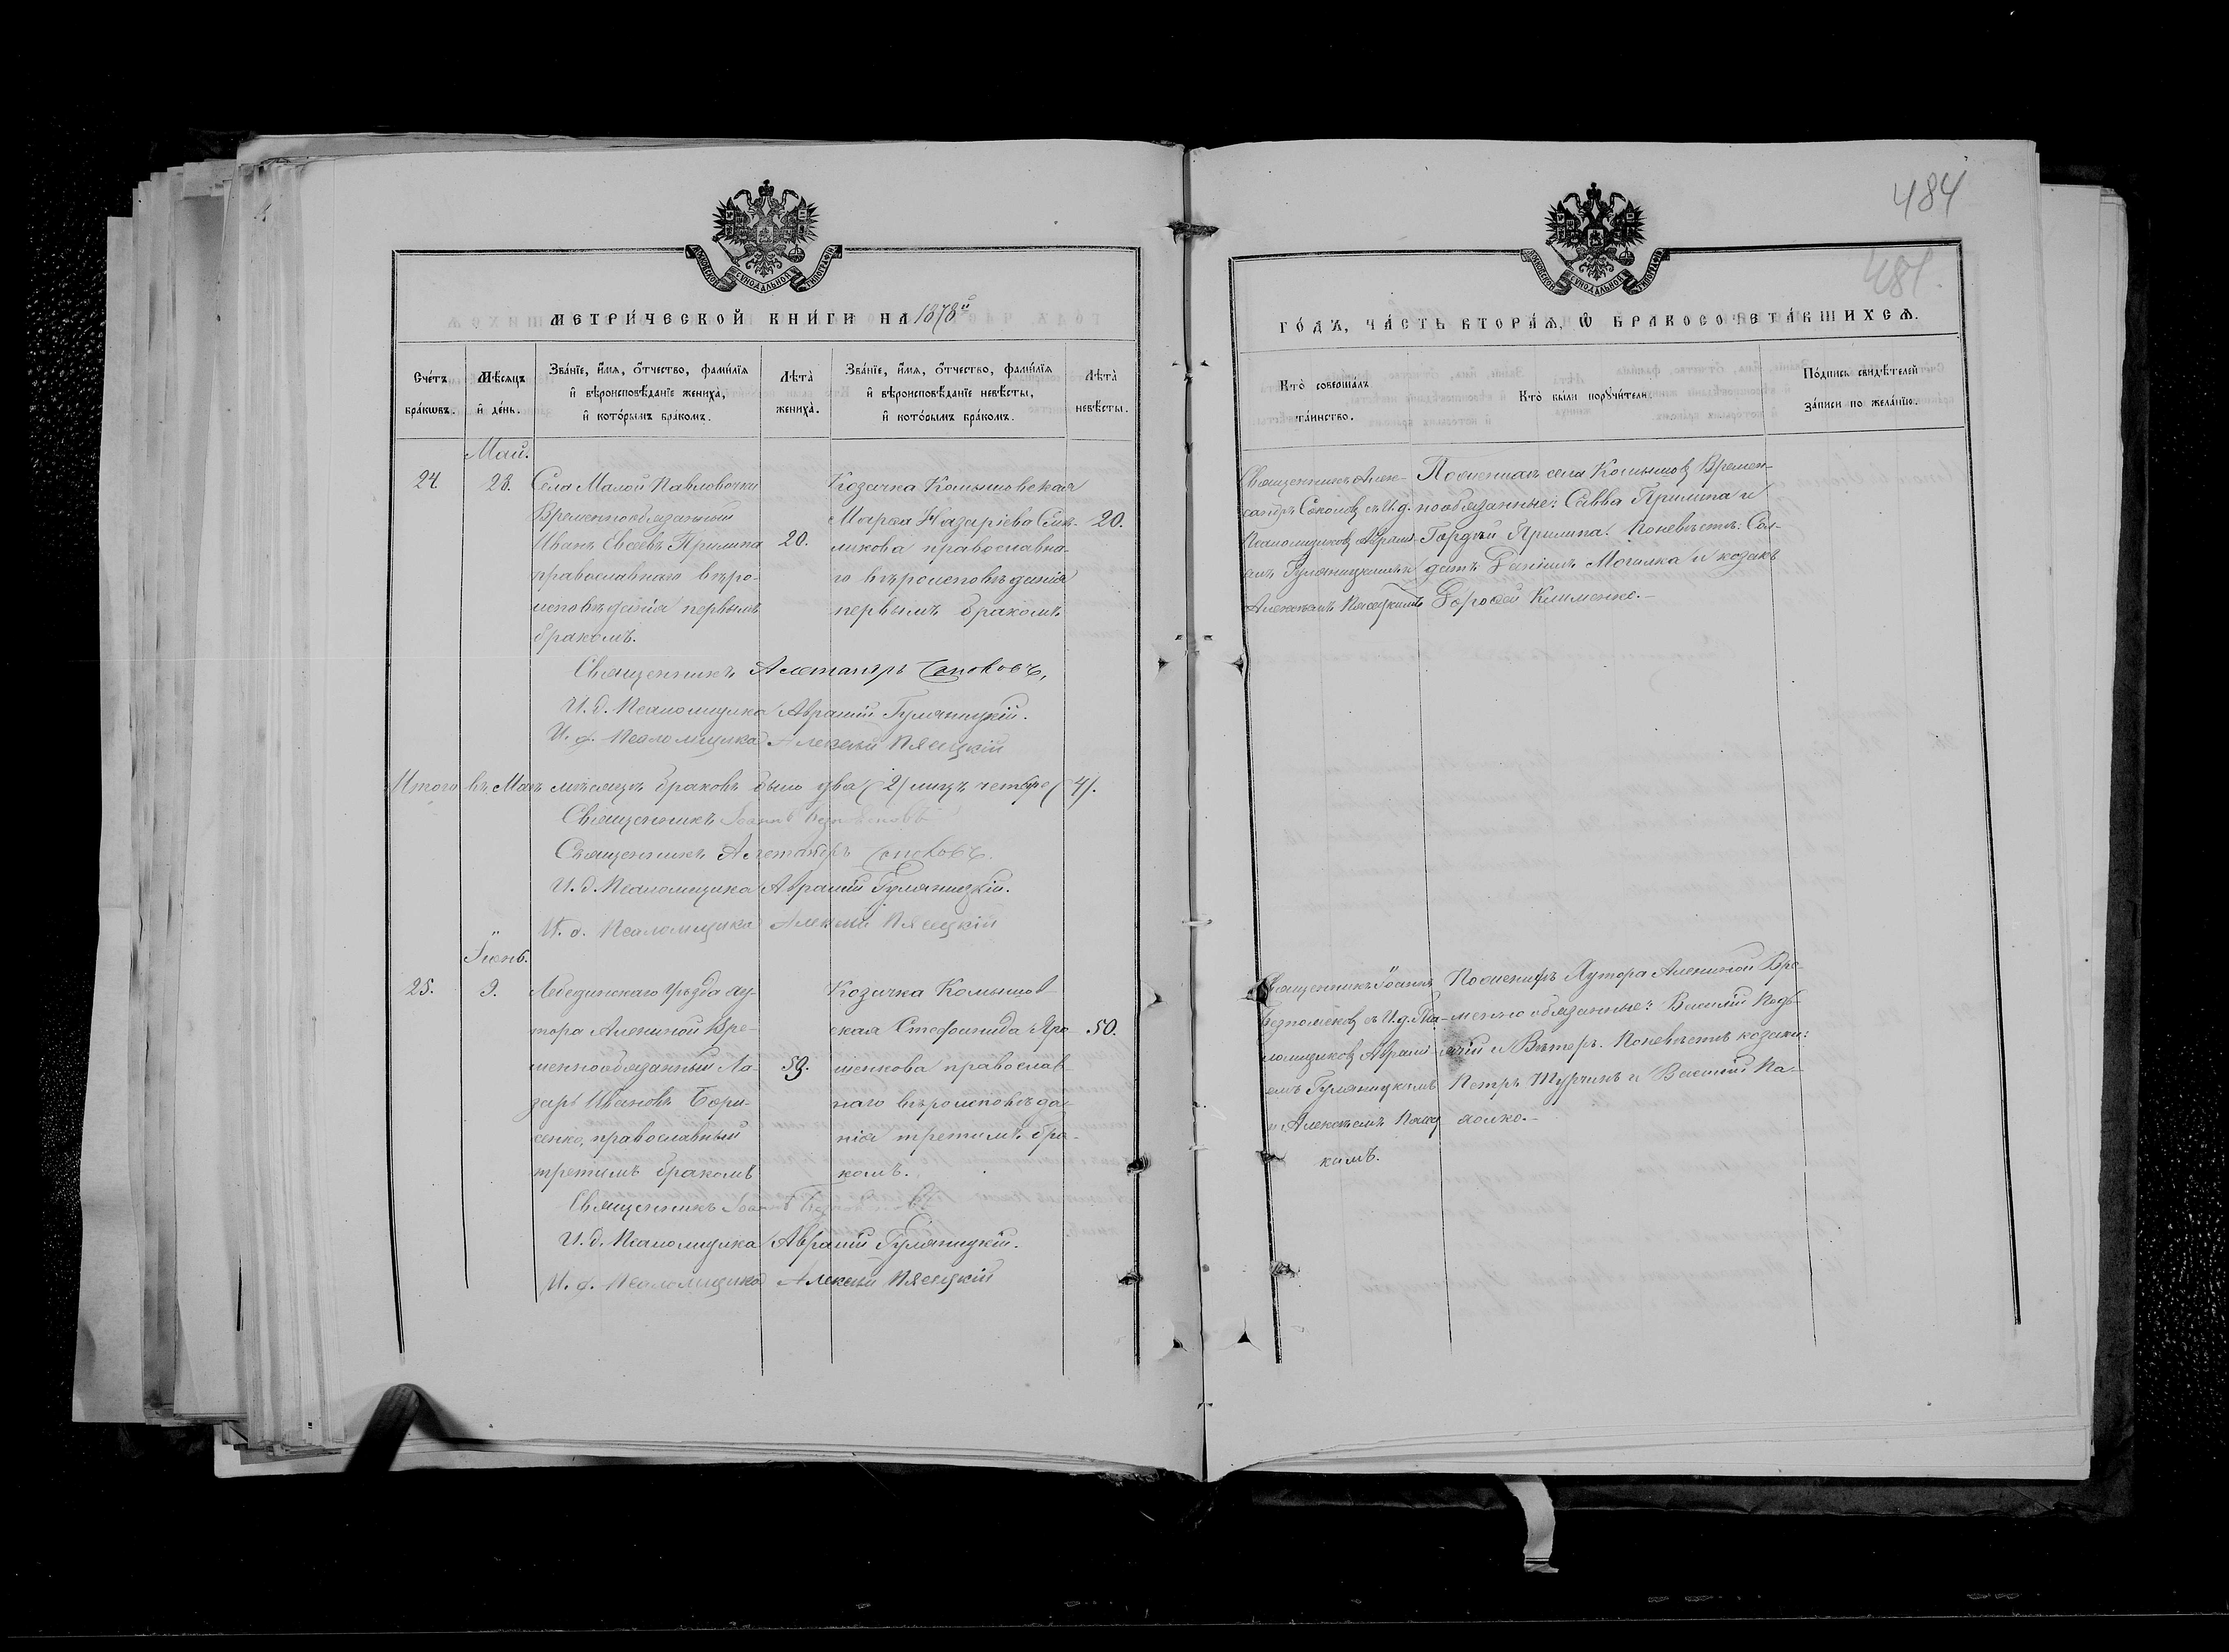 484
481.
МОСКОВСКОЙ СУНОДАЛЬНОЙ ТИПОГРАФІИ
МЕТРИ́ЧЕСКОЙ КНИ́ГИ НА 1878й
Сче́тъ бра́кωвъ.
Мѣ́сяцъ и҆ де́нь.
Зва́нїе, и҆́мѧ, ѻ҆́тчество, фамі́лїѧ
и҆ вѣроисповѣ́данїе жениха̀,
и҆ кото́рымъ бра́комъ.
Лѣта̀ жениха̀.
Зва́нїе, и҆́мѧ, ѻ҆́тчество, фамі́лїѧ
и҆ вѣроисповѣ́данїе невѣ́сты,
и҆ кото́рымъ бра́комъ.
Лѣта̀ невѣ́сты.
Май.
24.
28.
Села Малой Павловочки
Временнообязанный
Иванъ Евсеевъ Прилипа
православнаго вѣро-
исповѣданія первымъ
бракомъ.
20.
Козачка Комышовская
Марѳа Назаріева
ликова православна-
го вѣроисповѣданія
первымъ бракомъ
20.
Священникъ Александръ Соколовъ,
И. д. Псаломщика Аврамій Гуляницкій.
И. д. Псаломщика Алексѣй Пясецкій
Итого въ Маѣ мѣсяцѣ браковъ было два (2) лицъ четыре (4).
Священникъ Іоаннъ
Священникъ Александръ Соколовъ.
И. д. Псаломщика Аврамій Гуляницкій.
И. д. Псаломщика Алексѣй Пясецкій
Іюнь.
25.
9.
Лебединскаго Уѣзда ху-
тора Алениной Вре-
меннообязанный Ла-
зарь Ивановъ Бори-
сенко, православный
третимъ бракомъ
59.
Козачка Комышов-
ская Стефанида Яро-
шенкова православ-
наго вѣроисповѣда-
нія третимъ бра-
комъ.
50.
Священникъ Іоаннъ
И. д. Псаломщика Аврамій Гуляницкій.
И. д. Псаломщика Алексѣй Пясецкій
МОСКОВСКОЙ СУНОДАЛЬНОЙ ТИПОГРАФІИ
ГО́ДЪ, ЧА́СТЬ ВТОРА́Ѧ, Ѽ БРАКОСОЧЕТА́ВШИХСѦ.
Кто̀ соверша́лъ
та́инство.
Кто̀ бы́ли порꙋчи́тели.
По́дпись свидѣ́телей
за́писи по жела́нїю.
Священникъ Алек-
сандръ Соколовъ съ И. д.
Псаломщиковъ Аврамі-
емъ Гуляницкимъ и
Алексѣемъ Пясецкимъ
По женихѣ села Комышовъ Времен-
нообязанные: Савва Прилипа и
Гордѣй Прилипа. По невѣстѣ: Сол-
датъ Даніилъ Могилка и козакъ
Дороѳей Клименко.
Священникъ Іоаннъ
съ И. д. Пса-
ломщиковъ Аврамі-
емъ Гуляницкимъ
и Алексѣемъ Пясец
кимъ.
По женихѣ Хутора Алениной Вре-
менно обязанные: Василій
и Вѣтеръ. По невѣстѣ козаки:
Петръ Турчинъ и Василій Па-